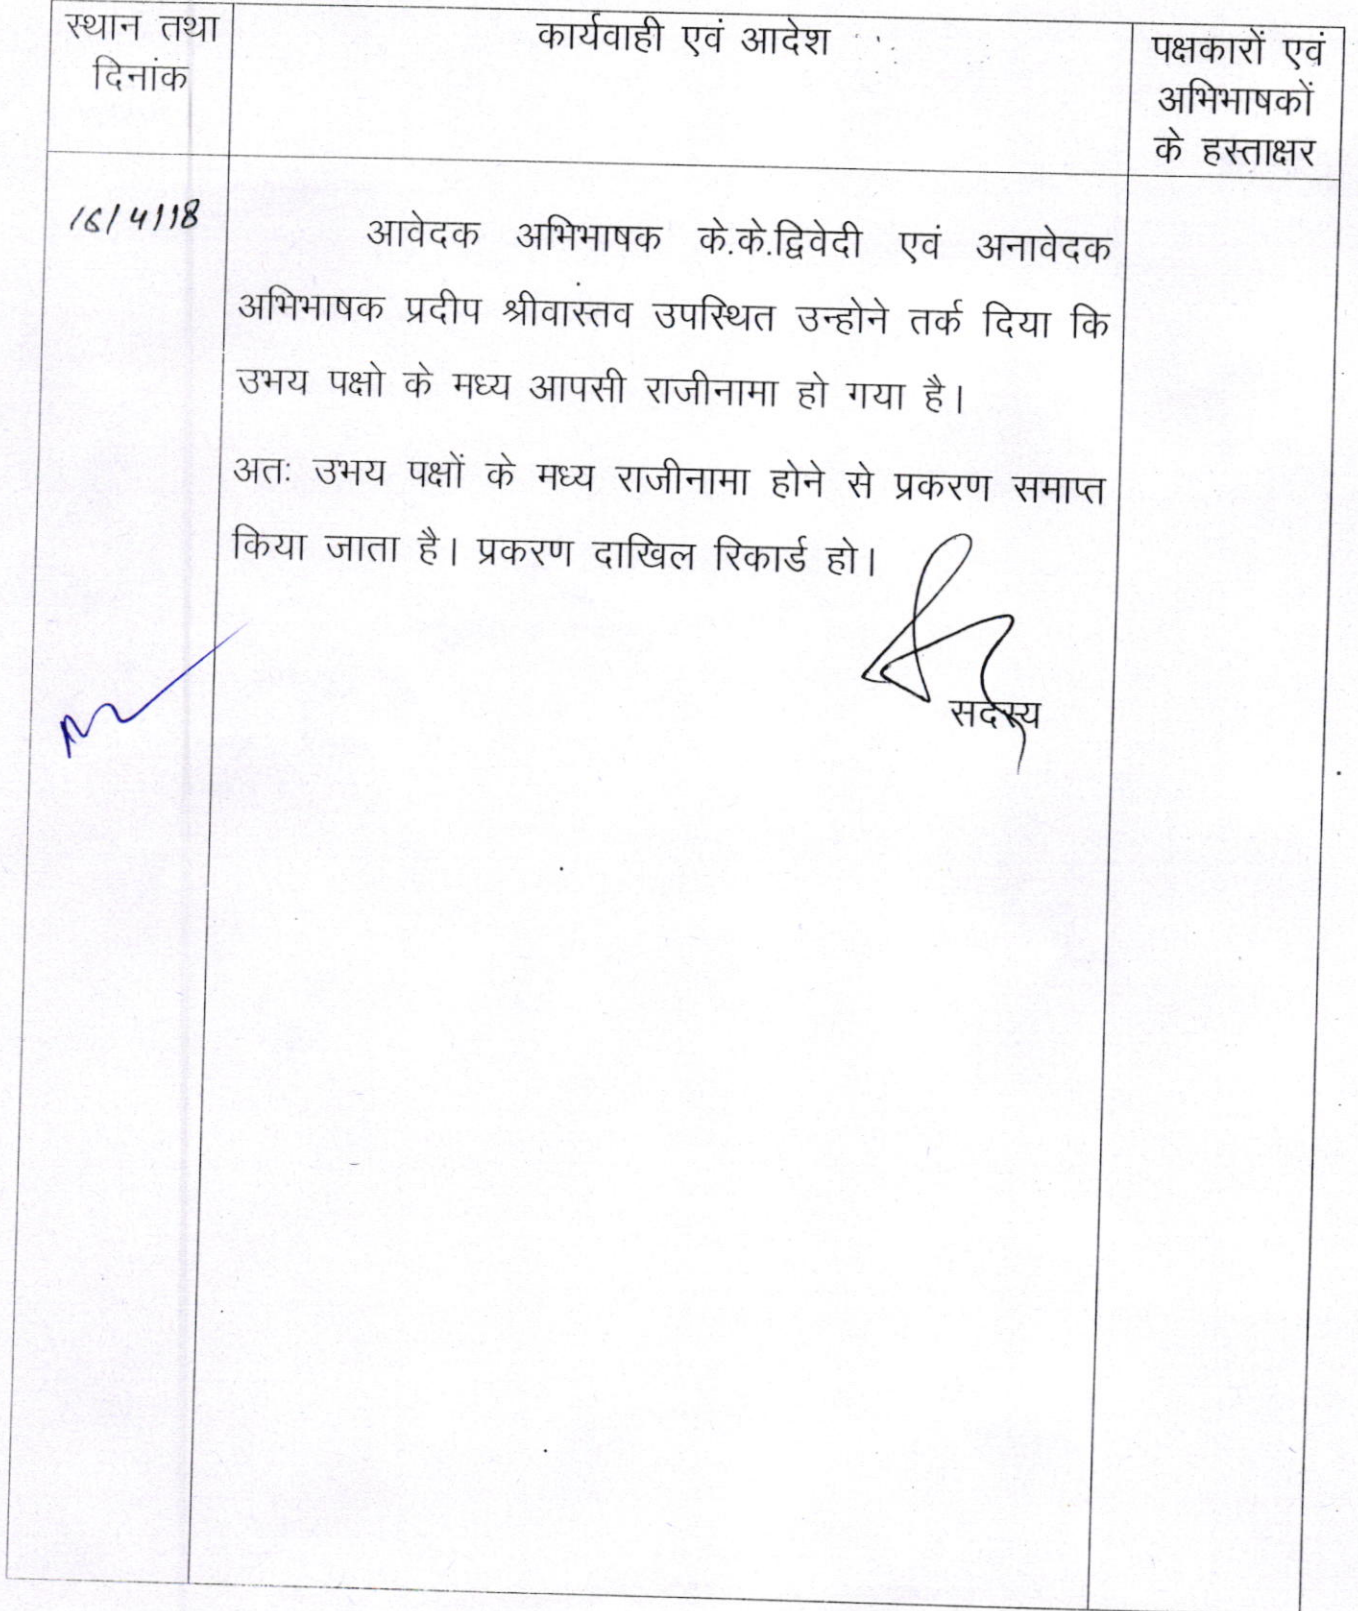 स्थान तथा
दिनांक
कार्यवाही एवं आदेश
पक्षकारों एवं
अभिभाषकों
के हस्ताक्षर
16/4/18
आवेदक अभिभाषक के.के.द्विवेदी एवं अनावेदक
अभिभाषक प्रदीप श्रीवास्तव उपस्थित उन्होने तर्क दिया कि
उभय पक्षो के मध्य आपसी राजीनामा हो गया है।
अतः उभय पक्षों के मध्य राजीनामा होने से प्रकरण समाप्त
किया जाता है। प्रकरण दाखिल रिकार्ड हो।
सदस्य